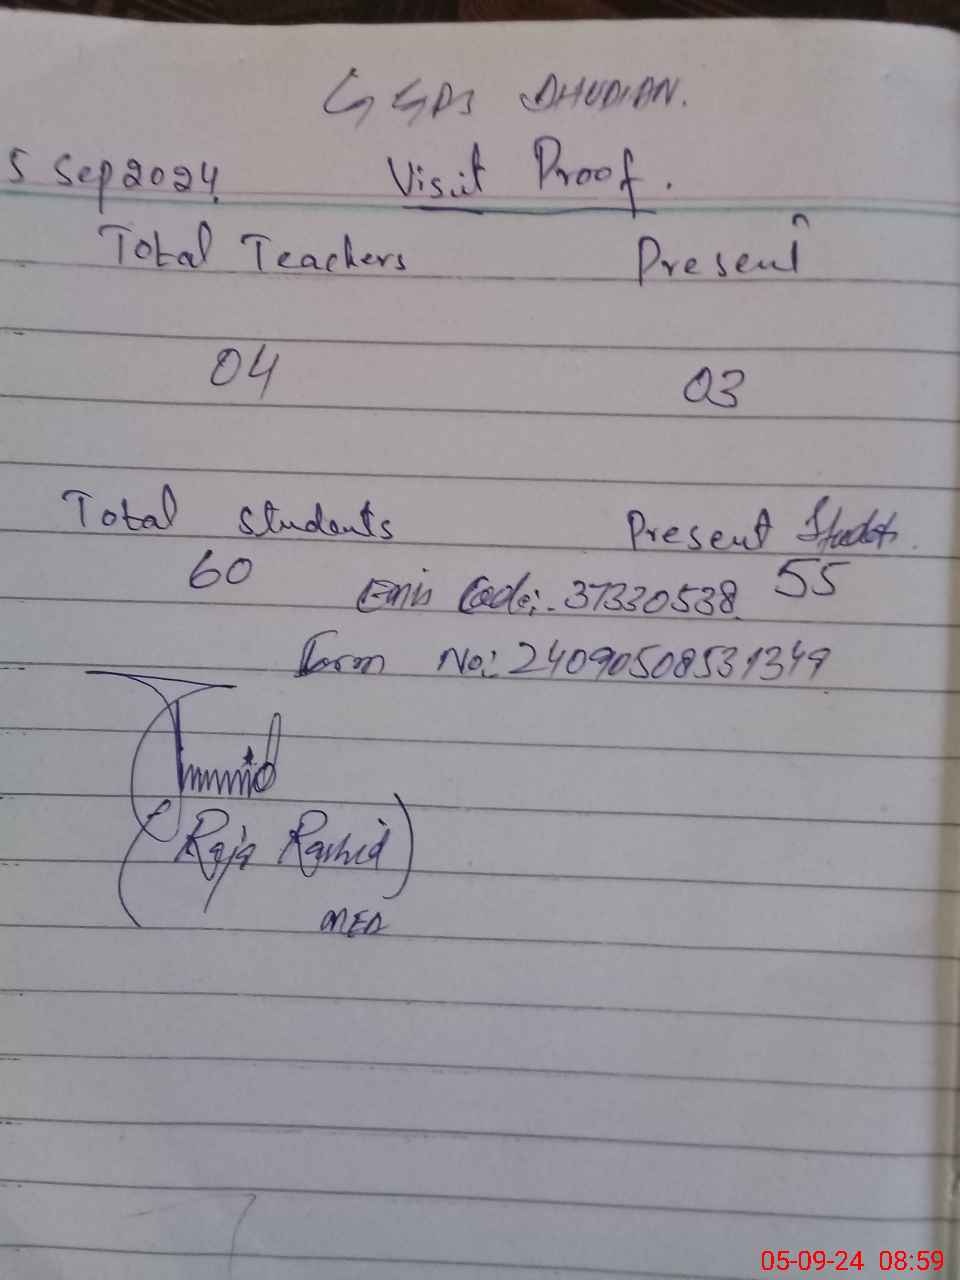 GGPS DHUDIAN.
5 Sep 2024. Visit Proof.
Total Teachers Present
04 03
Total students Present Students.
60 55
Emis Code:- 37330538
Form No: 24090508531349
(Raja Rashid)
MEA
05-09-24 08:59